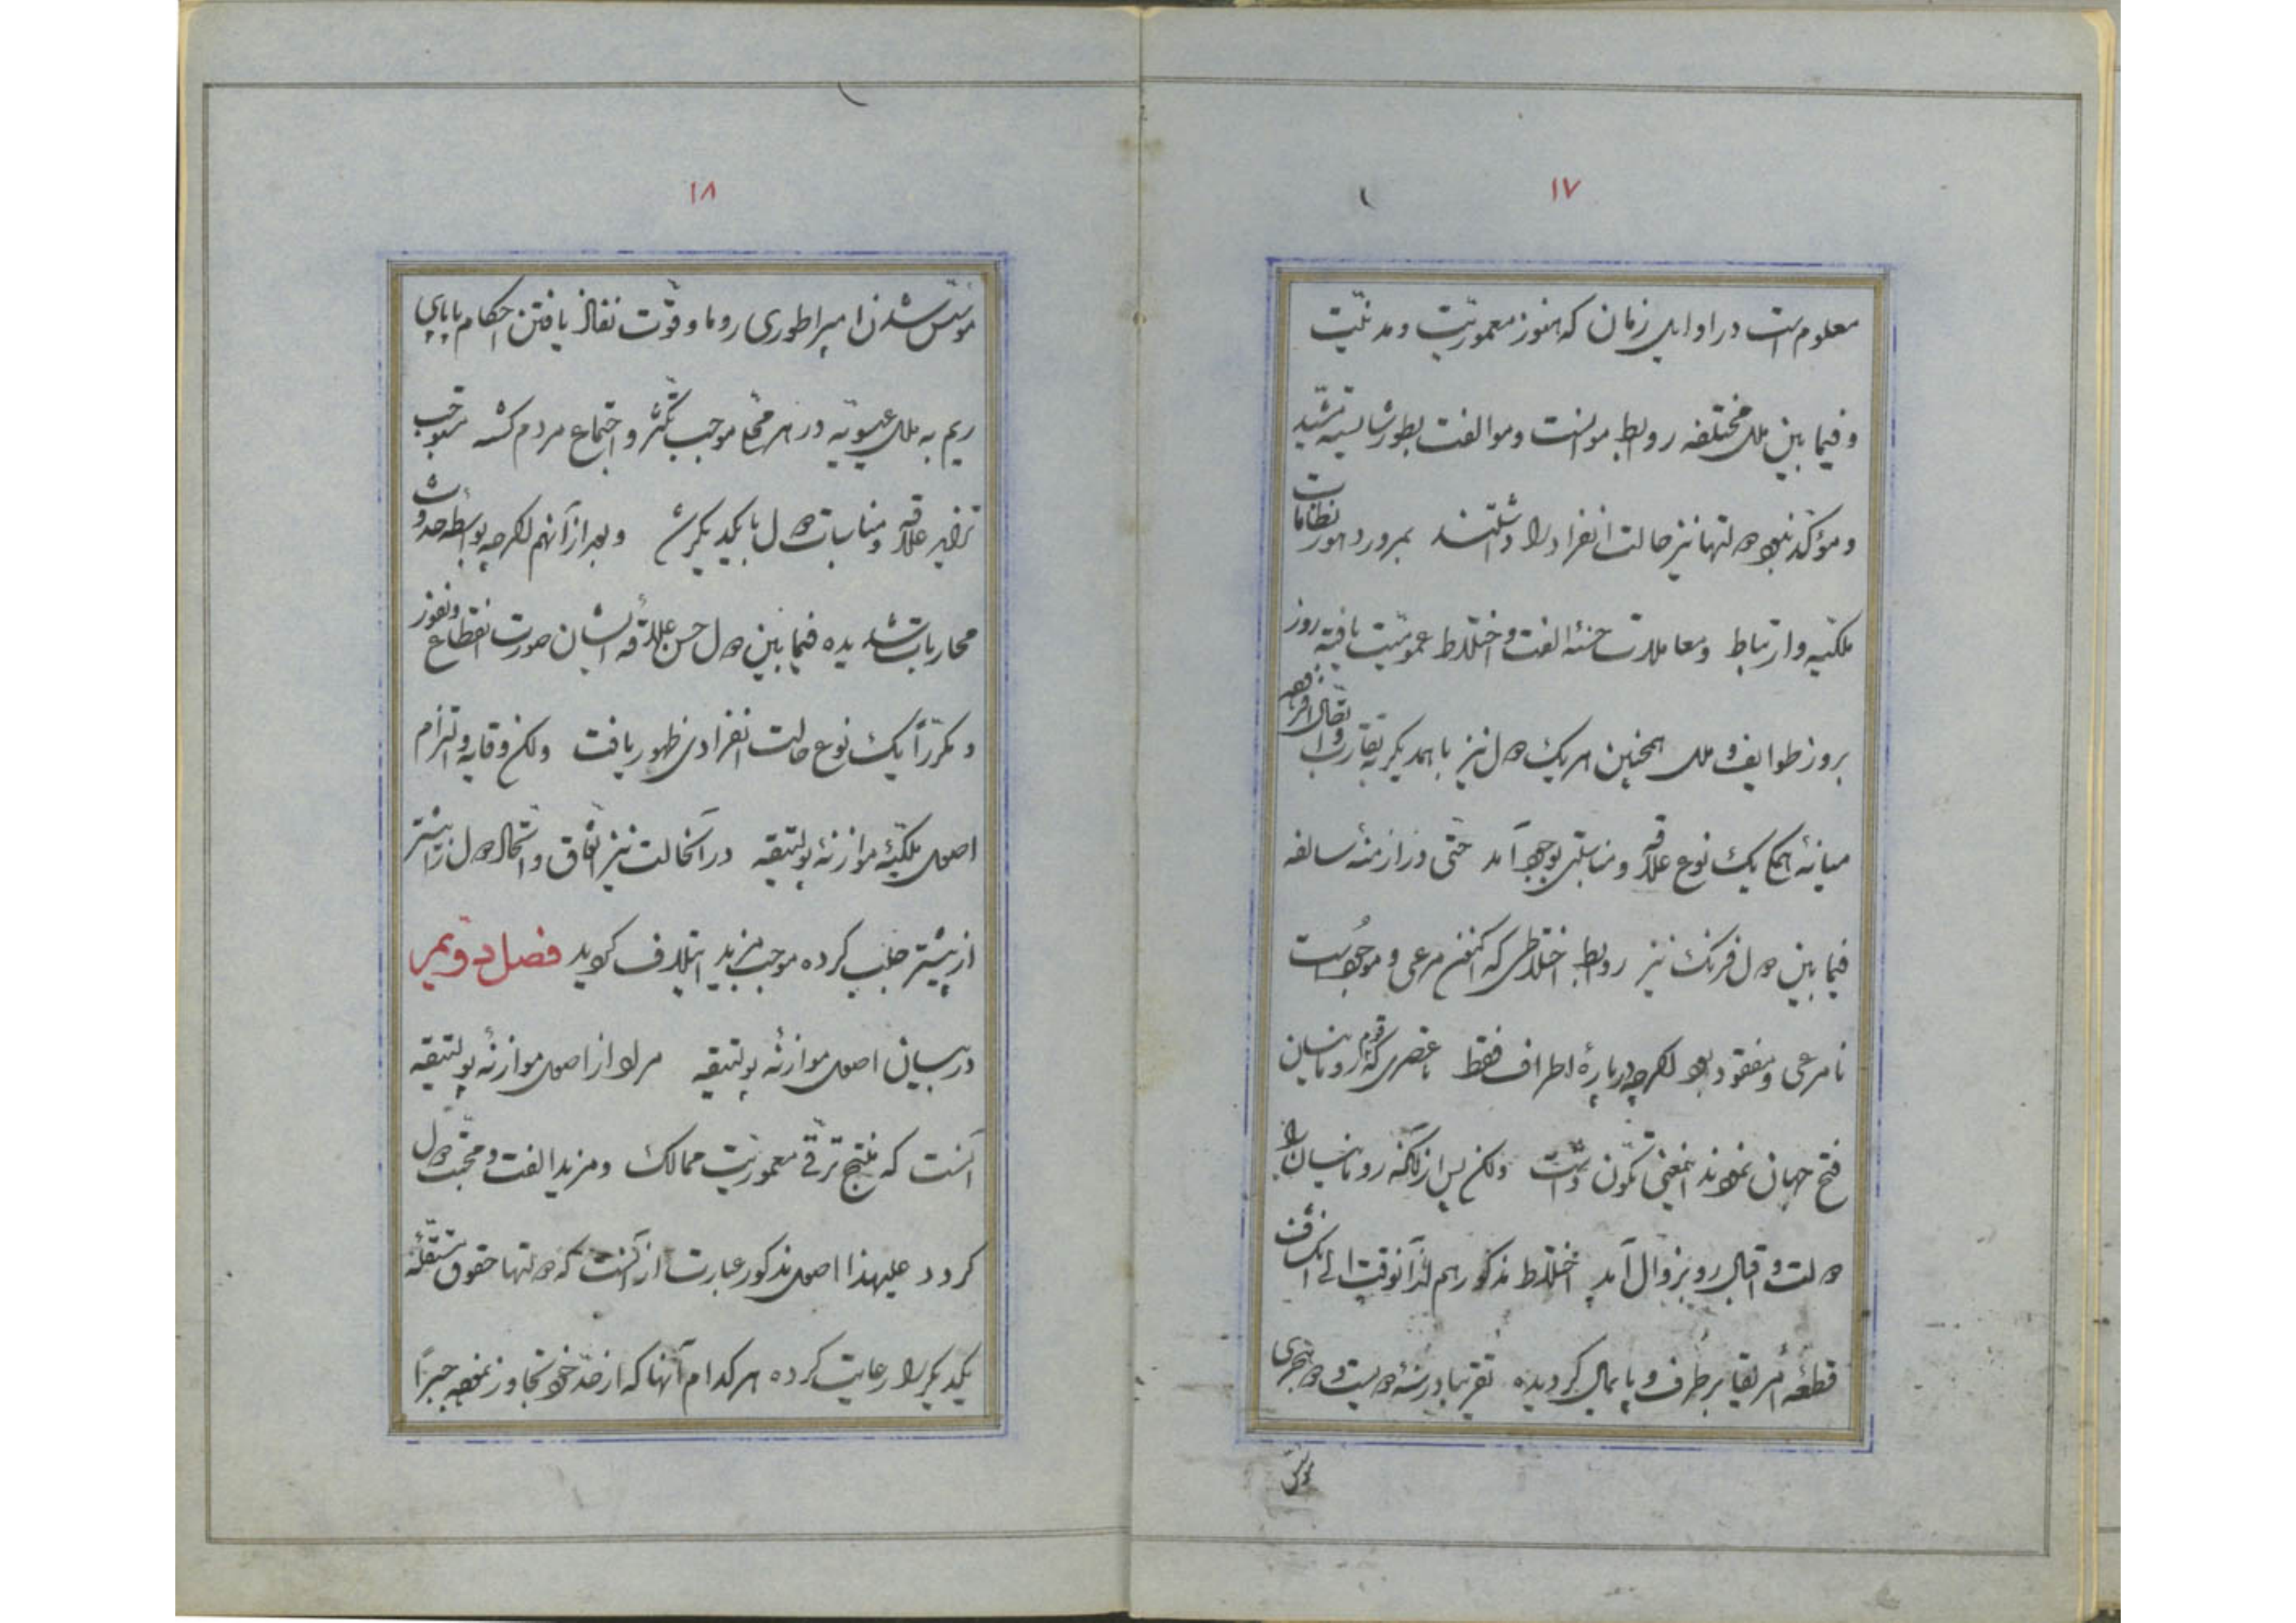 ۱۷
معلوم است در اوایل زمان که هنوز معموریت و مدنیت
و فیما بین ملل مختلفه روابط موانست و موالفت بطور شایسته مشید
و مؤکد نبود دولتها نیز حالت انفراد را داشتند بمرور دهور نظامات
ملکیه و ارتباط و معاملات حسنه الفت و اختلاط عمومیت یافته روز
بروز طوایف و ملل همچنین هر یک دول نیز با همدیگر تقارب و اتصال افزوده
میانهٔ همگی یک نوع علاقه و مناسبتی بوجود آمد حتی در ازمنهٔ سالفه
فیما بین دول فرنک نیز روابط اختلاطی که اکنون مرعی و موجود است
نامرعی و مفقود بود اگرچه دربارهٔ اطراف فقط عصری که قوم رومانیان
فتح جهان نمودند اینمعنی تکون داشت ولکن پس از آنکه رومانیان را
دولت و اقبال رو بزوال آمد اختلاط مذکور هم از آنوقت الی انکشاف
قطعهٔ امریقا برطرف و پایمال گردیده تقریبا در سنهٔ دویست و ده هجری
مؤسس
۱۸
مؤسس شدن امپراطوری روما و قوت نفاذ یافتن احکام پاپای
ریم به ملل عیسویه در هر محل موجب تکثر و اجتماع مردم گشته مستوجب
تزاید علاقه و مناسبات دول با یکدیگر شد و بعد از آنهم اگرچه بواسطه حدوث
محاربات شدیده فیما بین دول حسن علاقهٔ ایشان صورت انقطاع و نفوذ
و مکرراً یک نوع حالت انفرادی ظهور یافت ولکن وقایه و التزام
اصول ملکیهٔ موازنهٔ پولتیقه در آنحالت نیز اتفاق و اشتمال دول را بیشتر
از پیشتر جلب کرده موجب مزید ایتلاف گردید فصل دویم
در بیان اصول موازنهٔ پولتیقه مراد از اصول موازنهٔ پولتیقه
آنست که منتج ترقی معموریت ممالک و مزید الفت و محبت دول
گردد علیهذا اصول مذکور عبارت از آنست که دولتها حقوق مستقلهٔ
یکدیگر را رعایت کرده هر کدام آنها که از حد خود تجاوز نموده جبراً